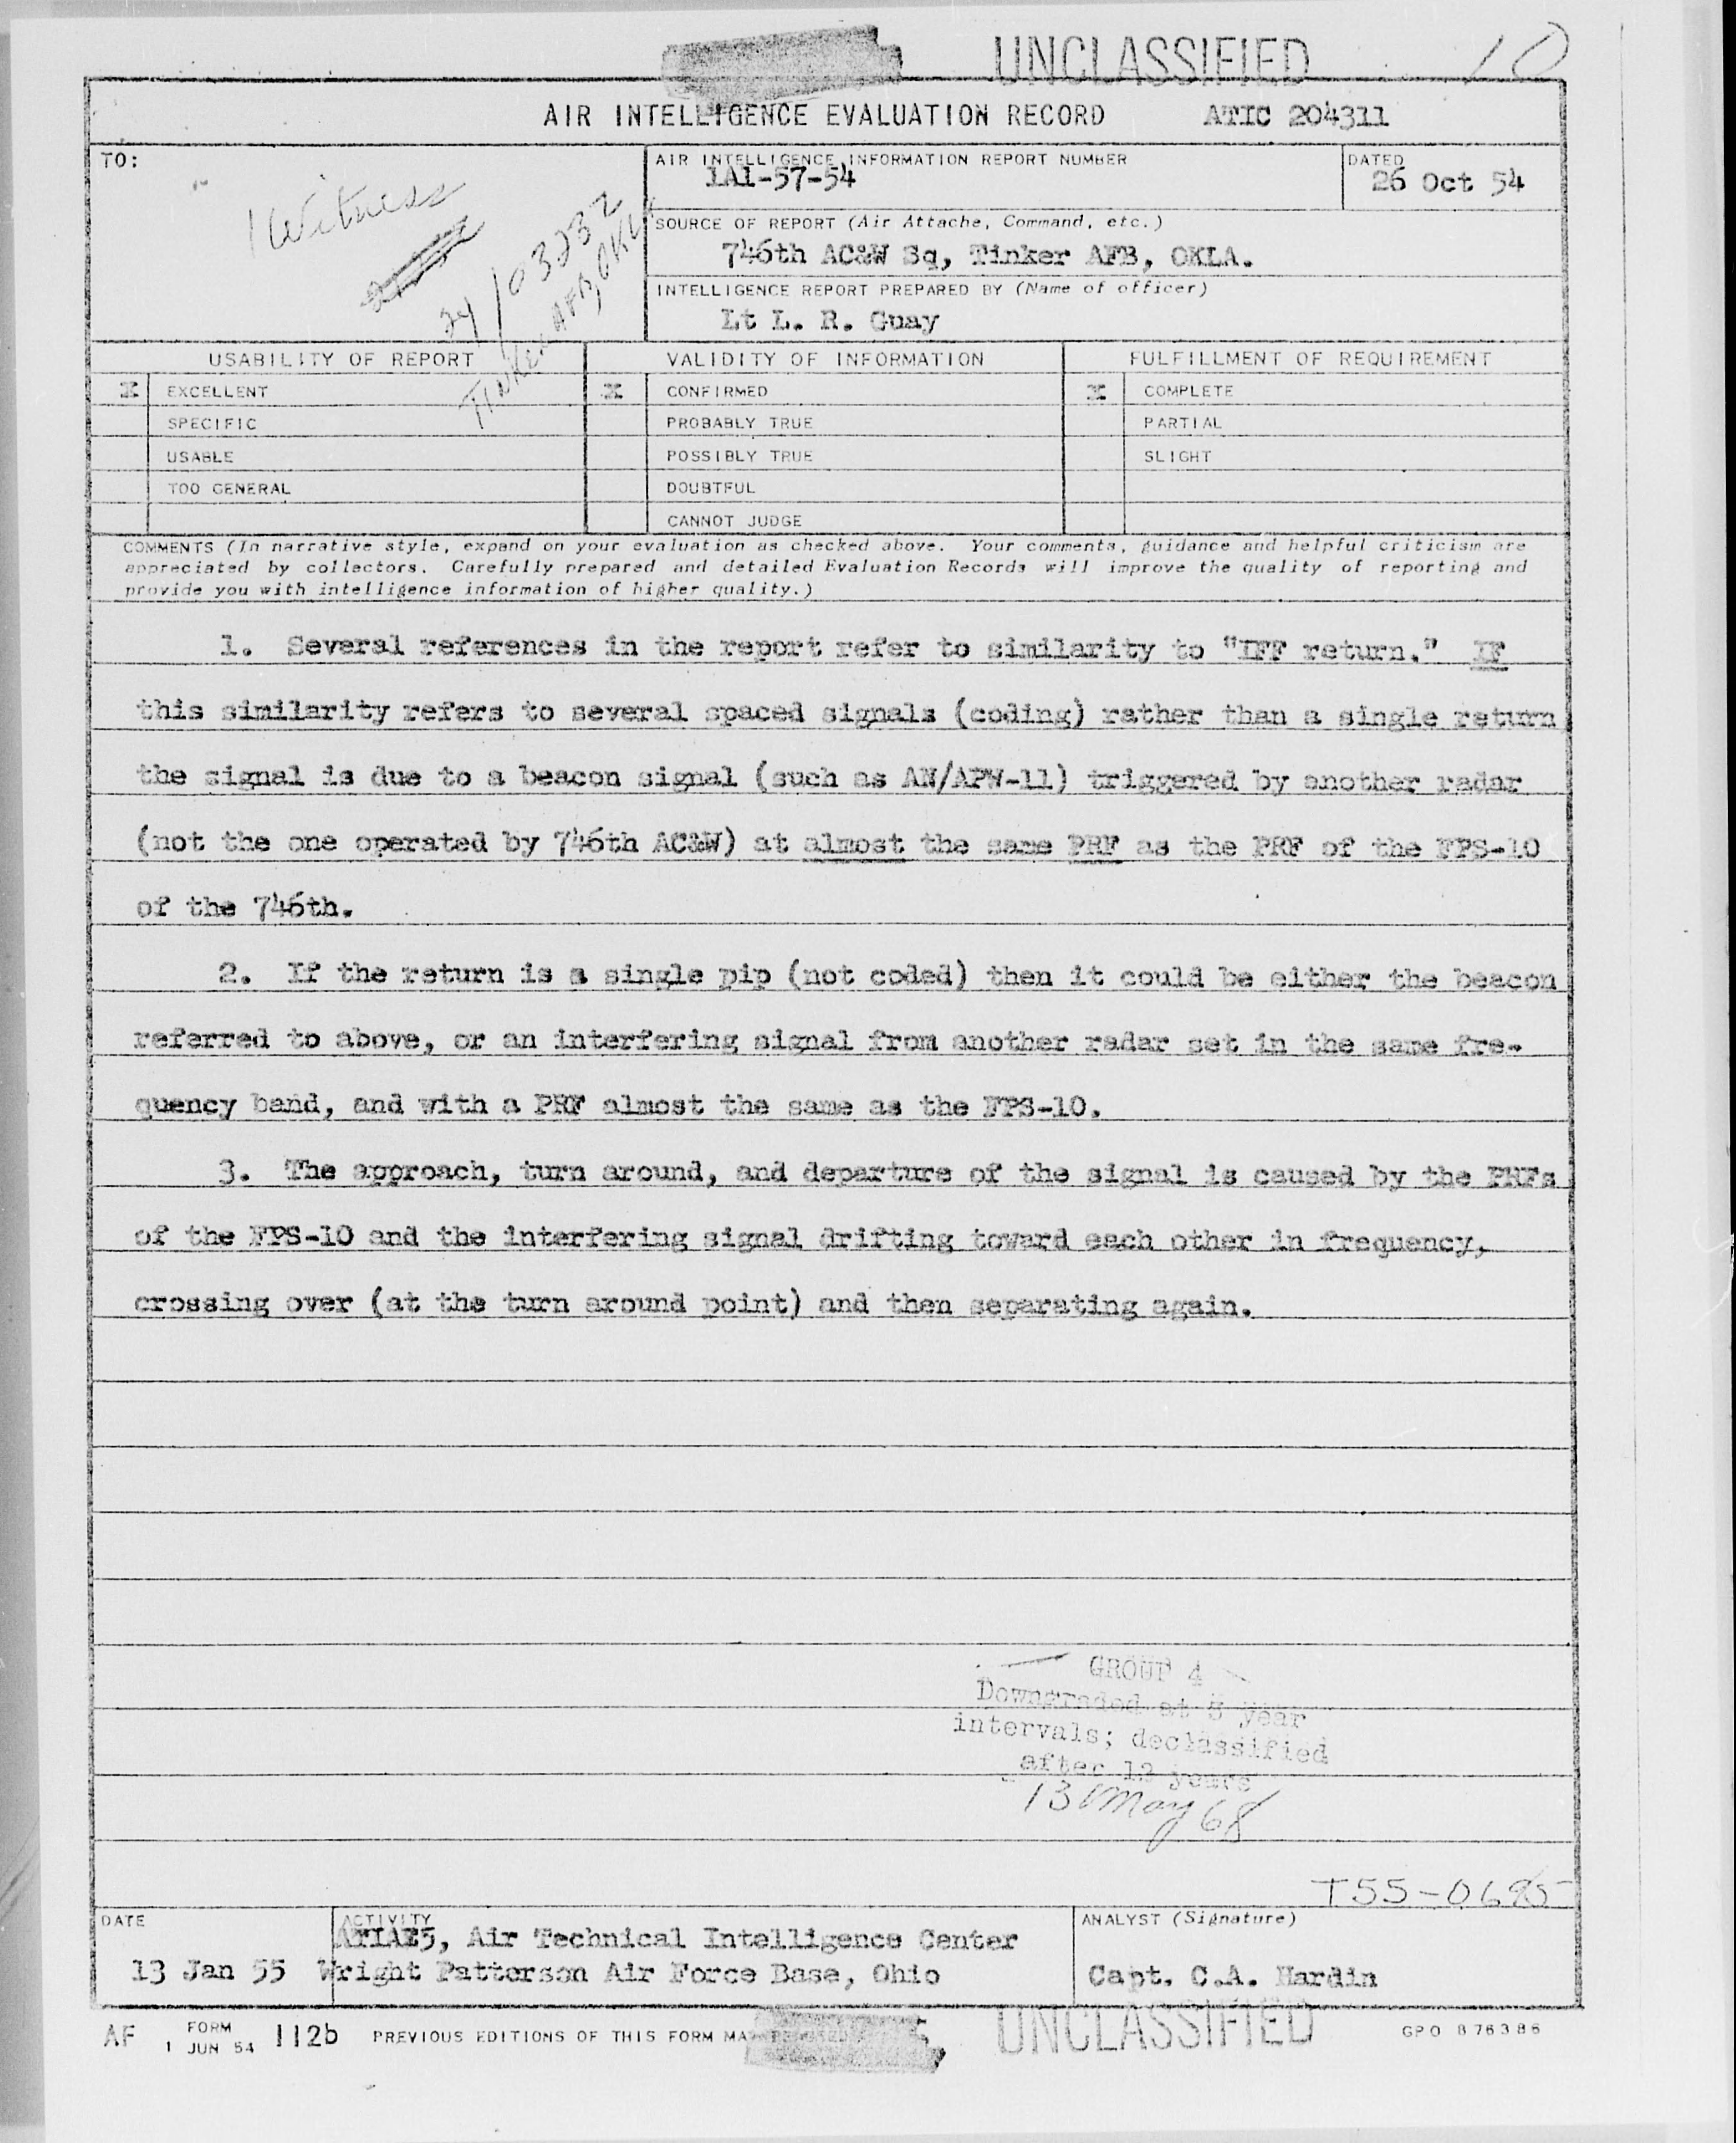 UNCLASSIFIED
10
AIR INTELLIGENCE EVALUATION RECORD ATIC 204311
TO:
1 Witness
24/0323Z
TINKER AFB, OKLA
AIR INTELLIGENCE INFORMATION REPORT NUMBER
1A1-57-54
DATED
26 Oct 54
SOURCE OF REPORT (Air Attache, Command, etc.)
746th AC&W Sq, Tinker AFB, OKLA.
INTELLIGENCE REPORT PREPARED BY (Name of officer)
Lt L. R. Guay
USABILITY OF REPORT VALIDITY OF INFORMATION FULFILLMENT OF REQUIREMENT
X EXCELLENT X CONFIRMED X COMPLETE
SPECIFIC PROBABLY TRUE PARTIAL
USABLE POSSIBLY TRUE SLIGHT
TOO GENERAL DOUBTFUL
CANNOT JUDGE
COMMENTS (In narrative style, expand on your evaluation as checked above. Your comments, guidance and helpful criticism are
appreciated by collectors. Carefully prepared and detailed Evaluation Records will improve the quality of reporting and
provide you with intelligence information of higher quality.)
1. Several references in the report refer to similarity to "IFF return." IF
this similarity refers to several spaced signals (coding) rather than a single return
the signal is due to a beacon signal (such as AN/APW-11) triggered by another radar
(not the one operated by 746th AC&W) at almost the same PRF as the PRF of the FPS-10
of the 746th.
2. If the return is a single pip (not coded) then it could be either the beacon
referred to above, or an interfering signal from another radar set in the same fre-
quency band, and with a PRF almost the same as the FPS-10.
3. The approach, turn around, and departure of the signal is caused by the PRFs
of the FPS-10 and the interfering signal drifting toward each other in frequency,
crossing over (at the turn around point) and then separating again.
GROUP 4
Downgraded at 3 year
intervals; declassified
after 12 years
13 May 68
T55-0695
DATE
13 Jan 55
ACTIVITY
ATIAE5, Air Technical Intelligence Center
Wright Patterson Air Force Base, Ohio
ANALYST (Signature)
Capt. C.A. Hardin
AF FORM 1 JUN 54 112b PREVIOUS EDITIONS OF THIS FORM MAY
UNCLASSIFIED
GPO 876386